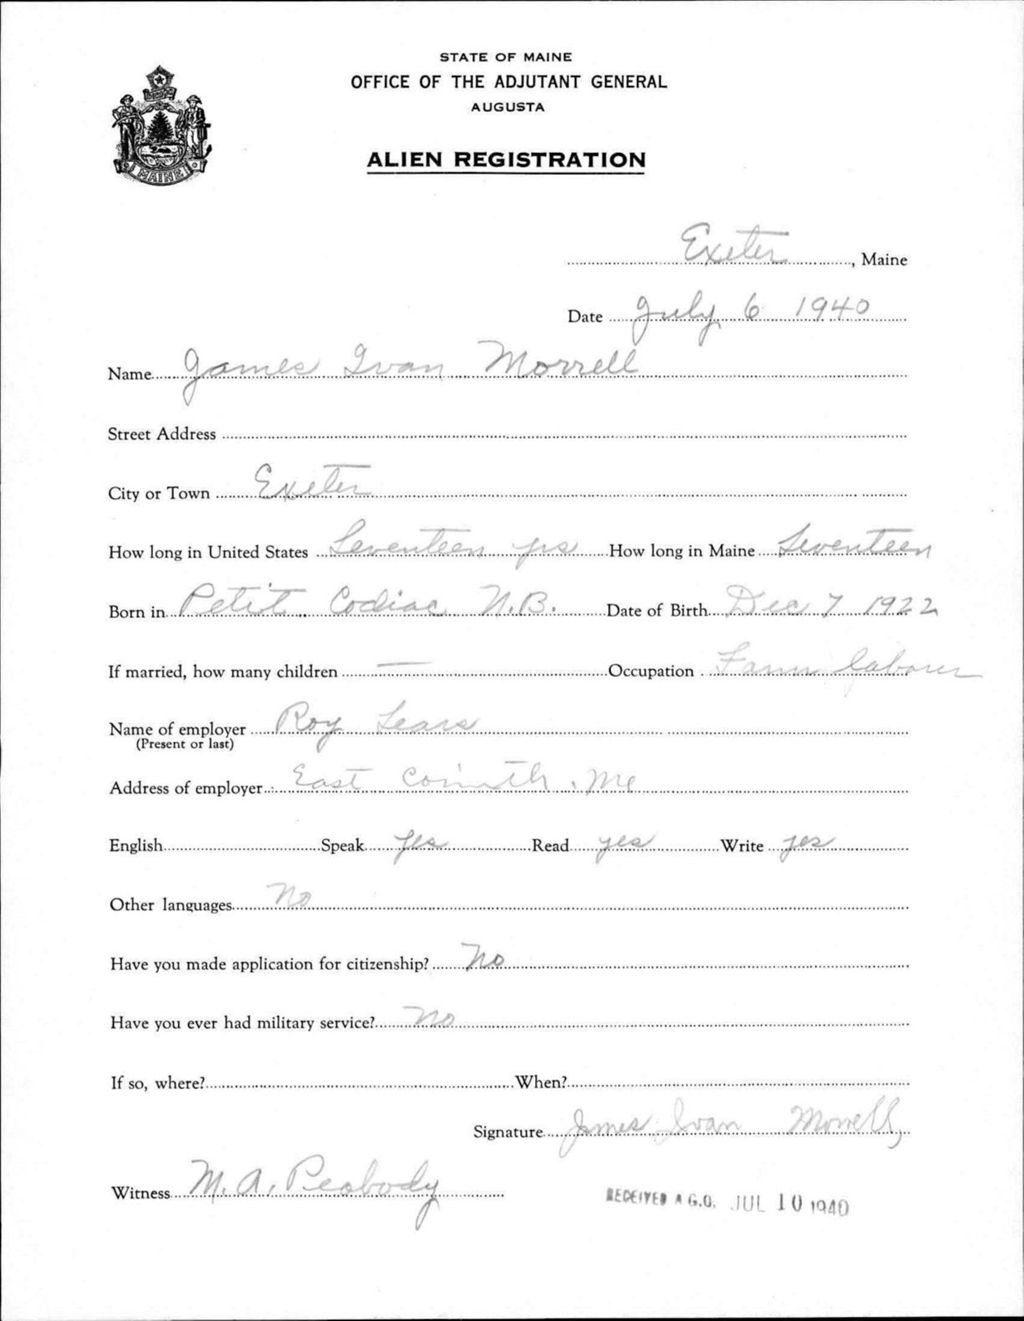 STATE OF MAINE
OFFICE OF THE ADJUTANT GENERAL
AUGUSTA
ALIEN REGISTRATION
MAINE
Exeter, Maine
Date July 6 1940
Name James Ivan Morrell
Street Address
City or Town Exeter
How long in United States Seventeen yrs How long in Maine Seventeen
Born in Petit Codiac N.B. Date of Birth Dec 7 1922
If married, how many children — Occupation Farm laborer
Name of employer Roy Sears
(Present or last)
Address of employer East Corinth, Me
English Speak Yes Read yes Write yes
Other languages No
Have you made application for citizenship? No
Have you ever had military service? No
If so, where? When?
Signature James Ivan Morrell
Witness M. A. Peabody
RECEIVED A.G.O. JUL 10 1940